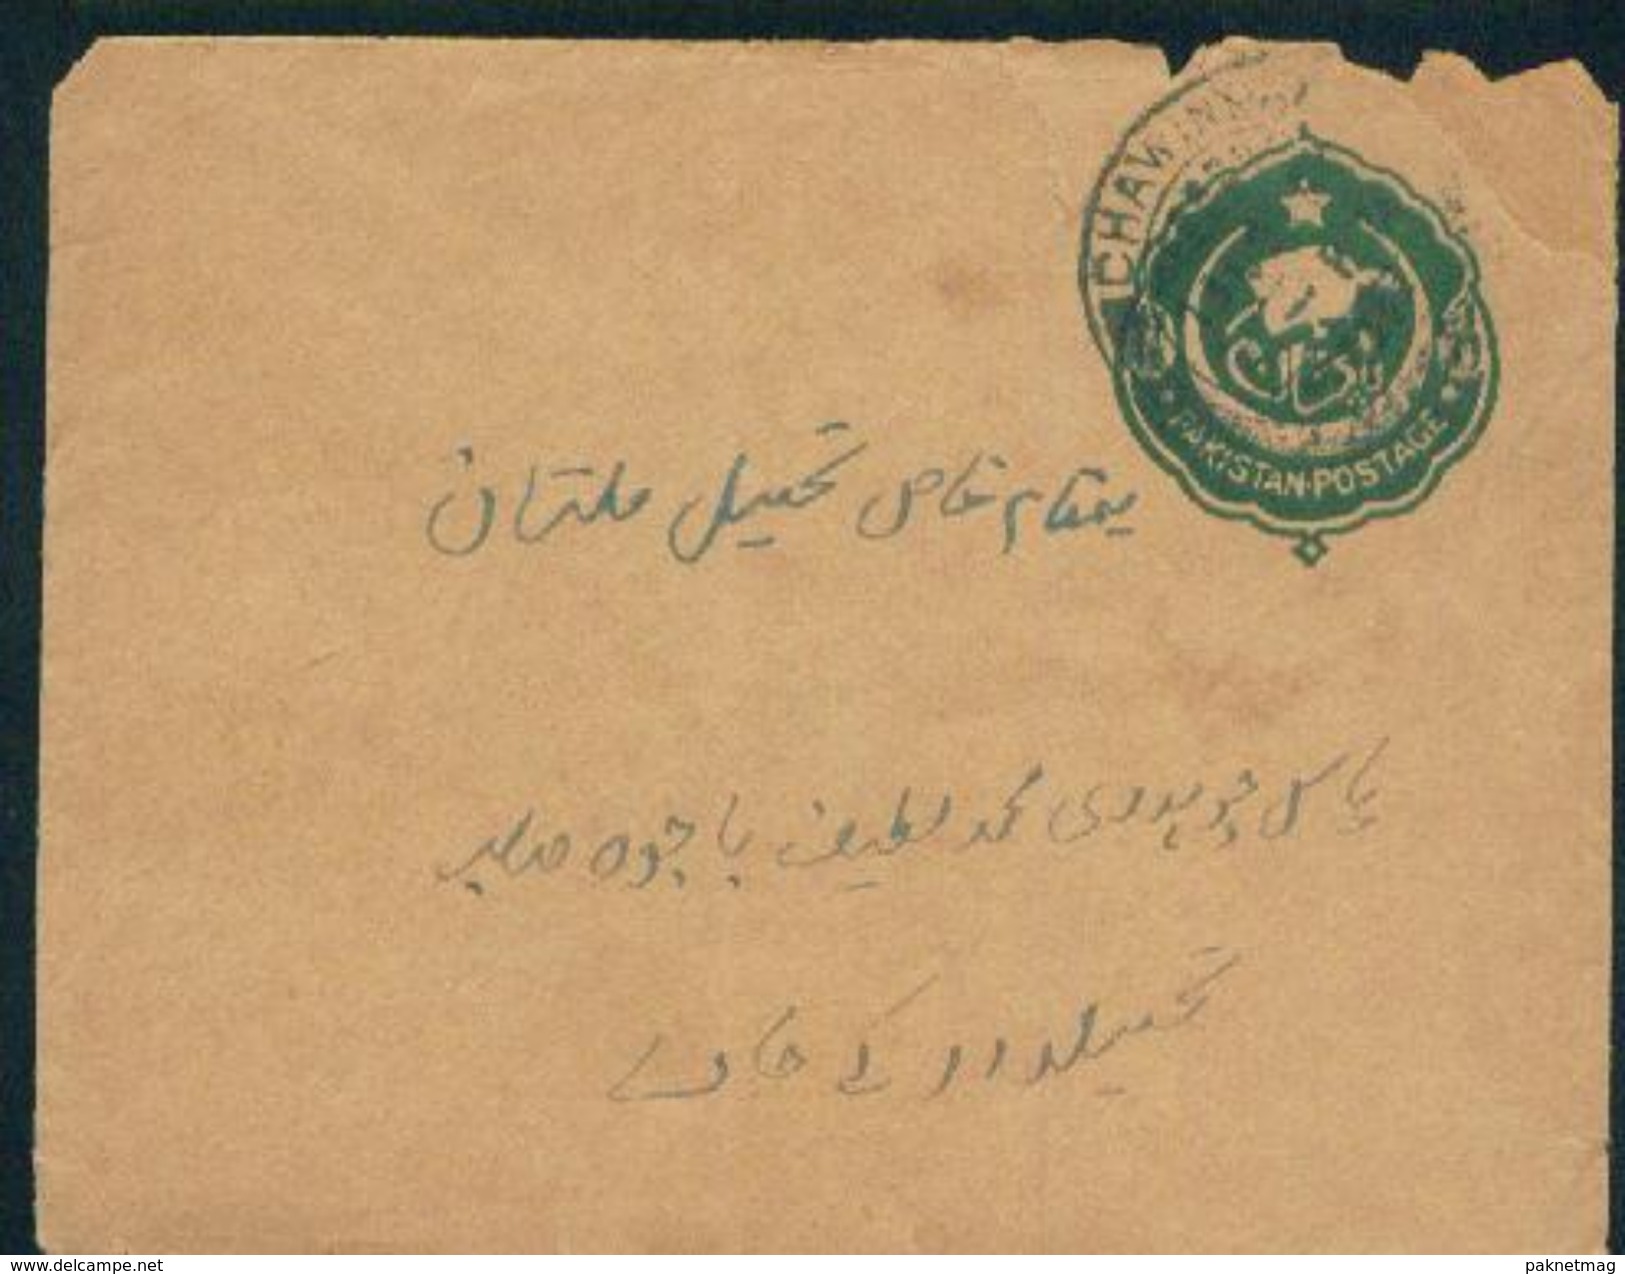 CHAWINN
پاکستان
PAKISTAN·POSTAGE
بمقام خاص تحصیل ملتان
پاس چوہدری محمد لطیف باجوہ صاحب
تحصیلدار کے
delcampe.net
paknetmag